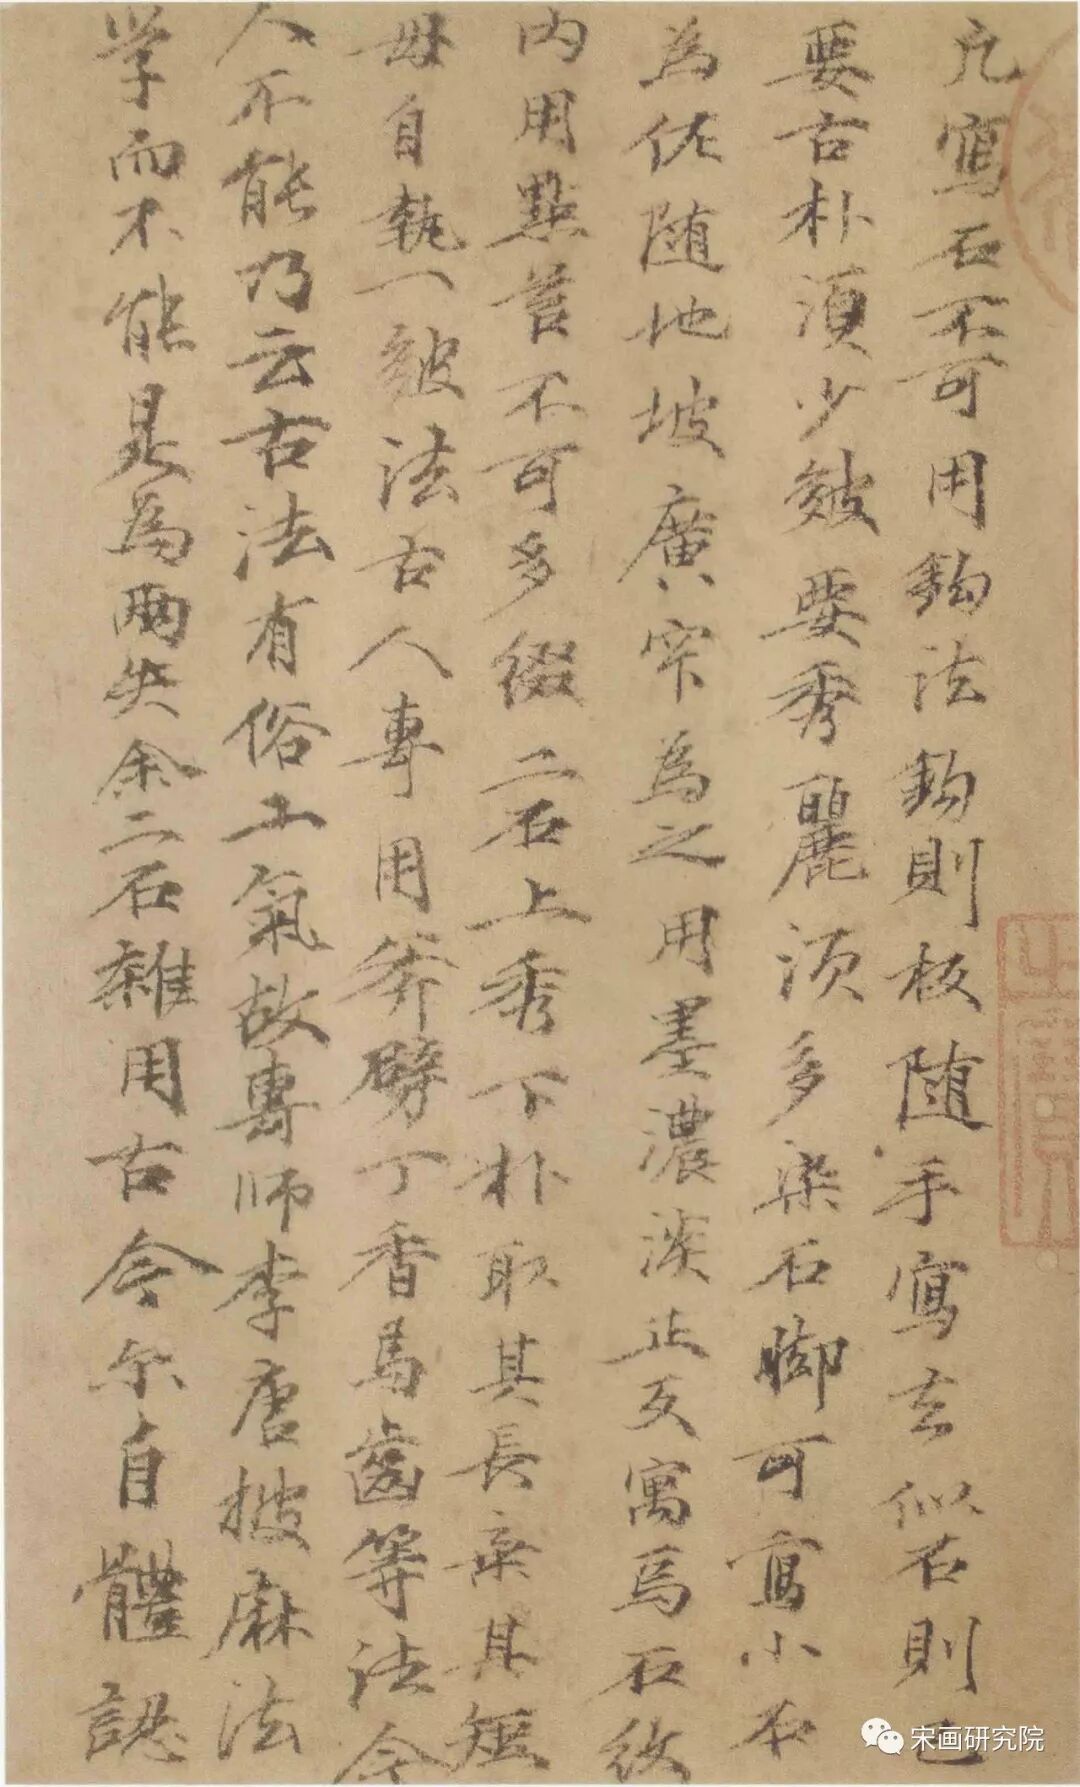 凡寫石不可用鈎法鈎則板随手寫去似石則已
要古朴湏少皴要秀麗湏多染石脚可寫小石
為伭随地坡廣窄為之用墨濃淡止叐寓焉石紋
内用點苔不可多綴二石上秀下朴取其長棄其短
毋自執一皴法古人專用斧劈丁香馬齒等法今
人不能乃云古法有俗工氣故專師李唐披麻法
学而不能是為兩失余二石雜用古今尔自體認
宋画研究院